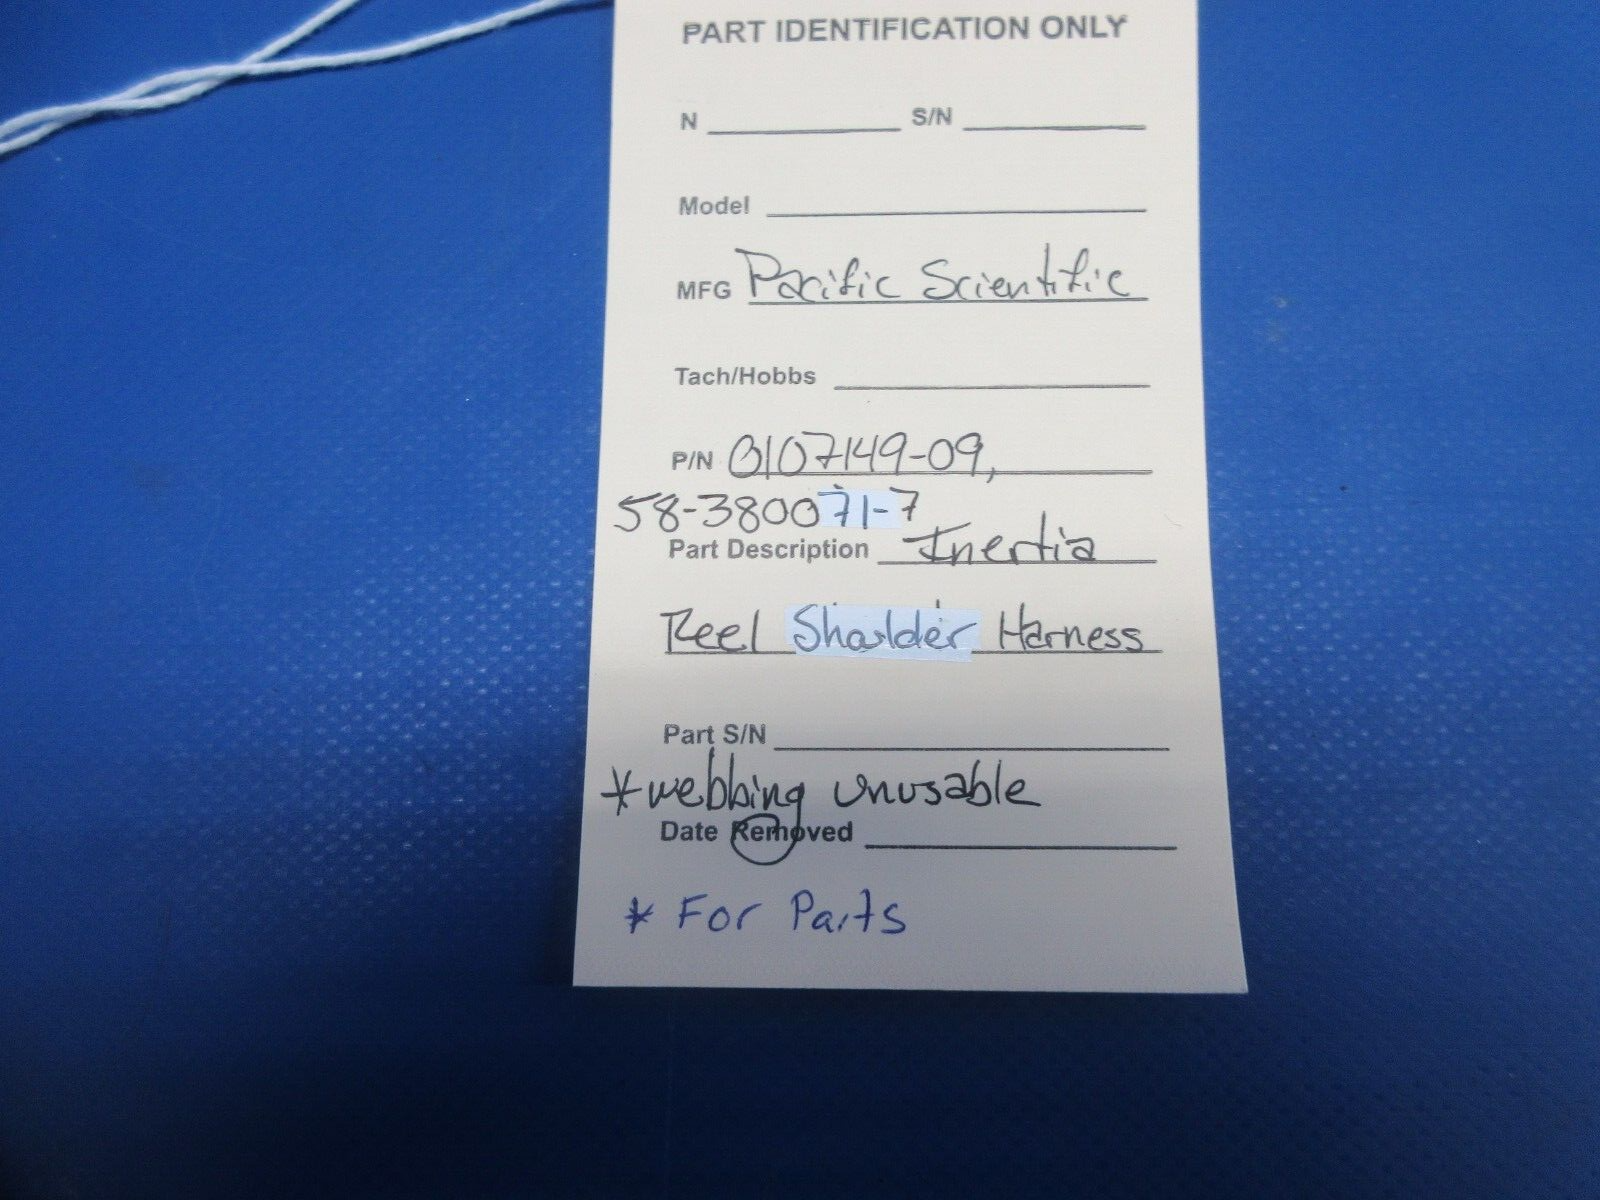 PART IDENTIFICATION ONLY
N S/N
Model
MFG Pacific Scientific
Tach/Hobbs
P/N 0107149-09,
58-380071-7
Part Description Inertia
Reel Shoulder Harness
Part S/N
*webbing unusable
Date Removed
* For Parts